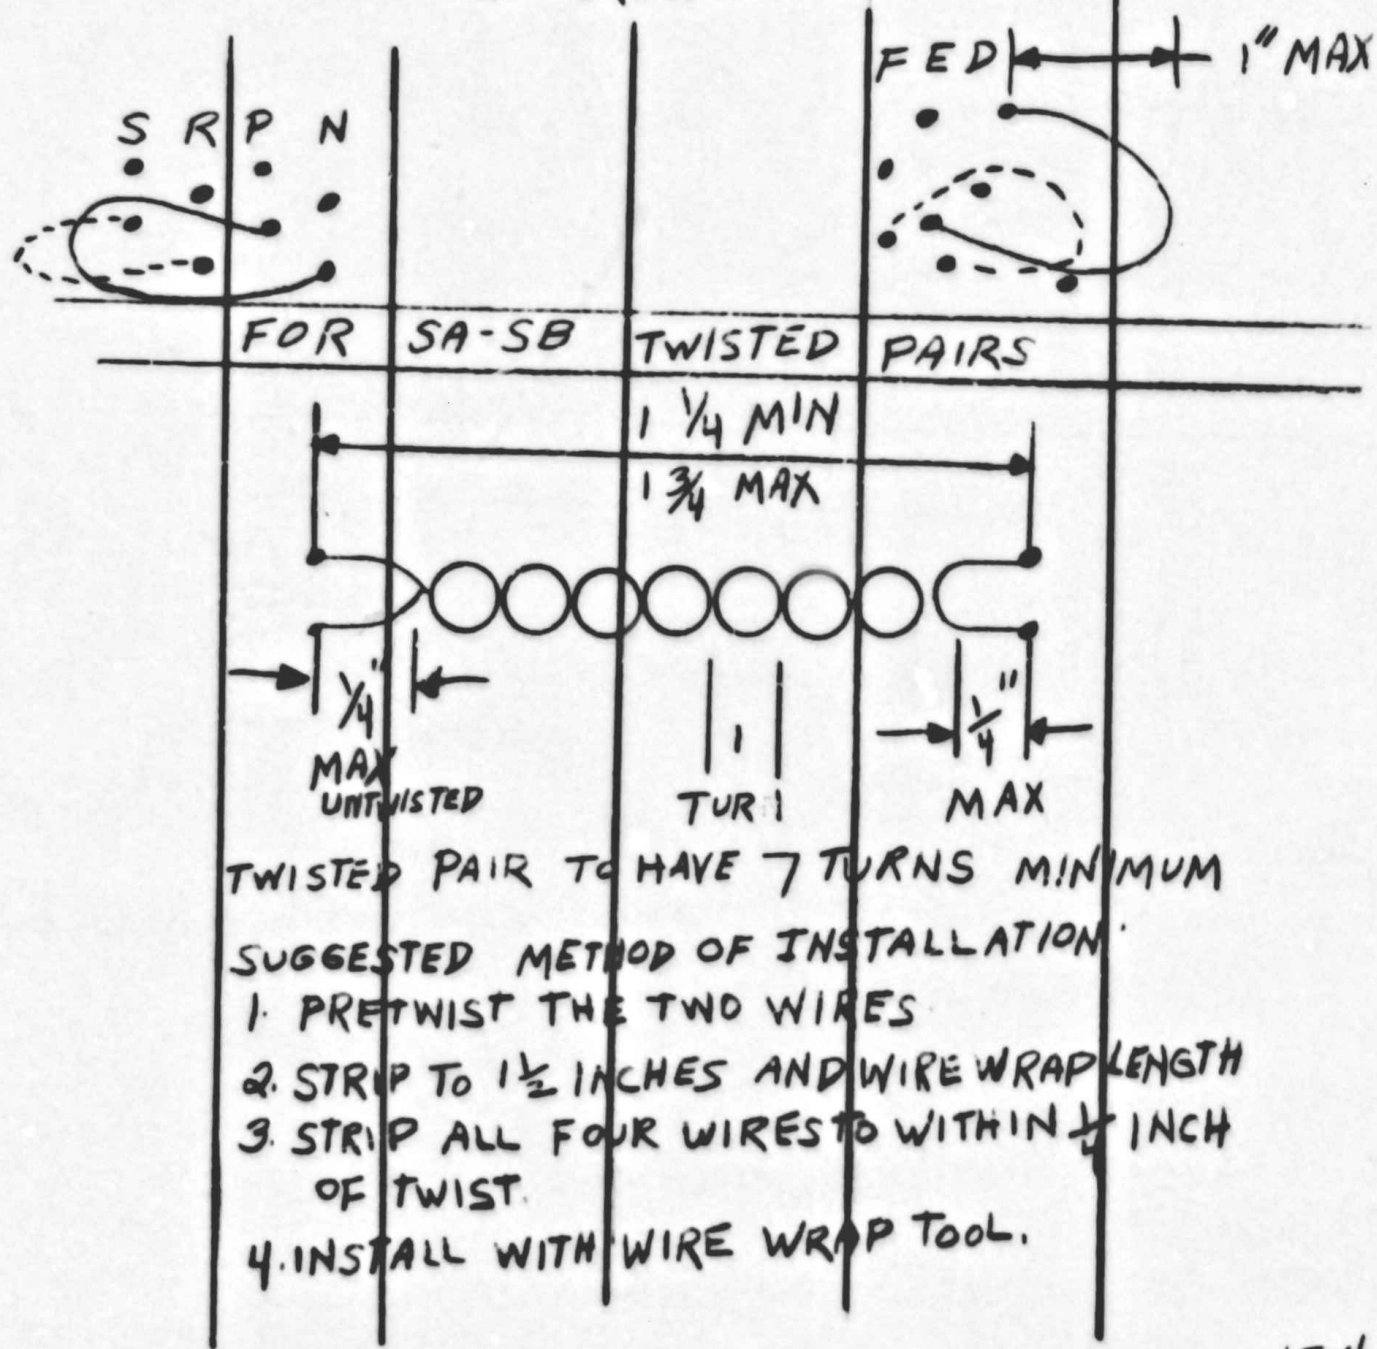 F E D 1" MAX
S R P N
FOR SA-SB TWISTED PAIRS
1 1/4 MIN
1 3/4 MAX
1/4" 1 1/4"
MAX TUR MAX
UNTWISTED
TWISTED PAIR TO HAVE 7 TURNS MINIMUM
SUGGESTED METHOD OF INSTALLATION
1. PRETWIST THE TWO WIRES
2. STRIP TO 1 1/2 INCHES AND WIRE WRAP LENGTH
3. STRIP ALL FOUR WIRES TO WITHIN 1/4 INCH
OF TWIST.
4. INSTALL WITH WIRE WRAP TOOL.